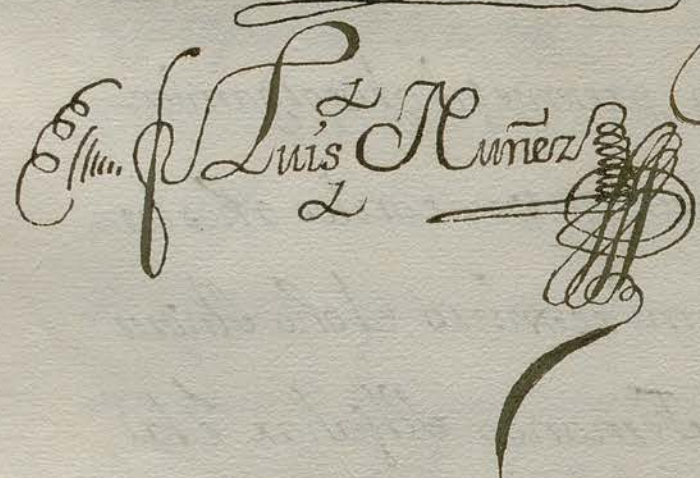 Luis Nuñez